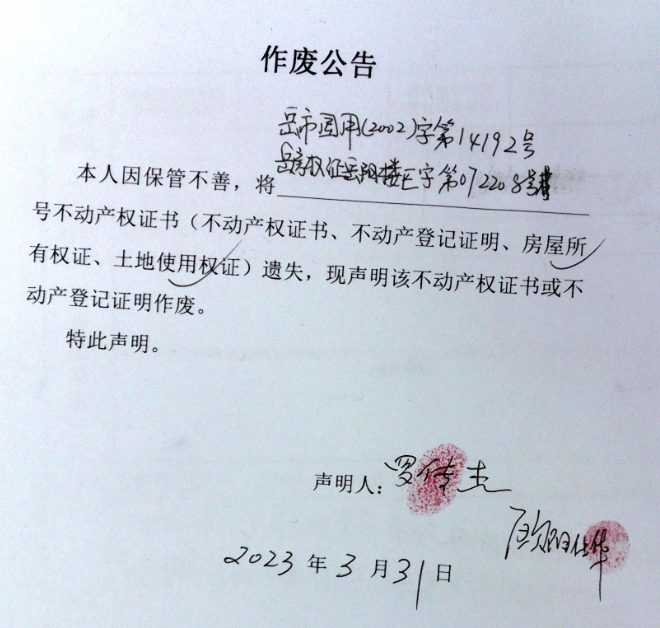 作废公告
岳市国用(2002)字第14192号
本人因保管不善，将岳房权证岳阳楼区字第072208号
号不动产权证书（不动产权证书、不动产登记证明、房屋所
有权证、土地使用权证）遗失，现声明该不动产权证书或不
动产登记证明作废。
特此声明。
声明人：罗传杰
欧阳仕华
2023年3月31日